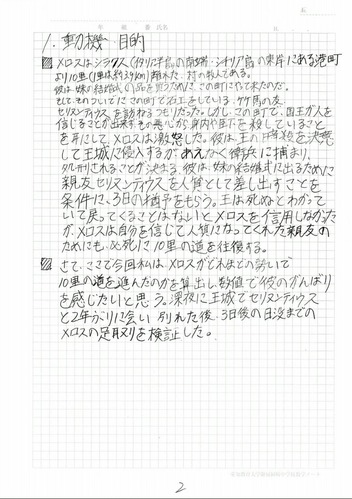 1. 動機・目的
メロスはシラクス(イタリア半島の南端・シチリア島の東岸にある港町
より10里(1里は約3.9km)離れた、村の牧人である。
彼は、妹の結婚式の品を買うためにこの町にやって来たのだ。
そして、そのついでにこの町で石工をしている、竹馬の友、
セリヌンティウスを訪ねるつもりだった。しかし、この町で、国王が人を
信じることが出来ず、その悪心から身内や臣下を殺していること
を耳にして、メロスは激怒した。彼は、王の暗殺を決意
して王城に侵入するが、あえなく衛兵に捕まり、
処刑されることが決まる。彼は、妹の結婚式に出るために
親友セリヌンティウスを人質として差し出すことを
条件に、3日の猶予をもらう。王は死ぬとわかって
いて戻ってくることはないとメロスを信用しなかった
が、メロスは自分を信じて人質になってくれた親友の
ためにも、必死に10里の道を往復する。
さて、ここで今回私は、メロスがどれほどの勢いで
10里の道を進んだのかを算出し、数値で彼のがんばり
を感じたいと思う。深夜に王城でセリヌンティウス
と2年ぶりに会い、別れた後、3日後の日没までの
メロスの足取りを検証した。
2